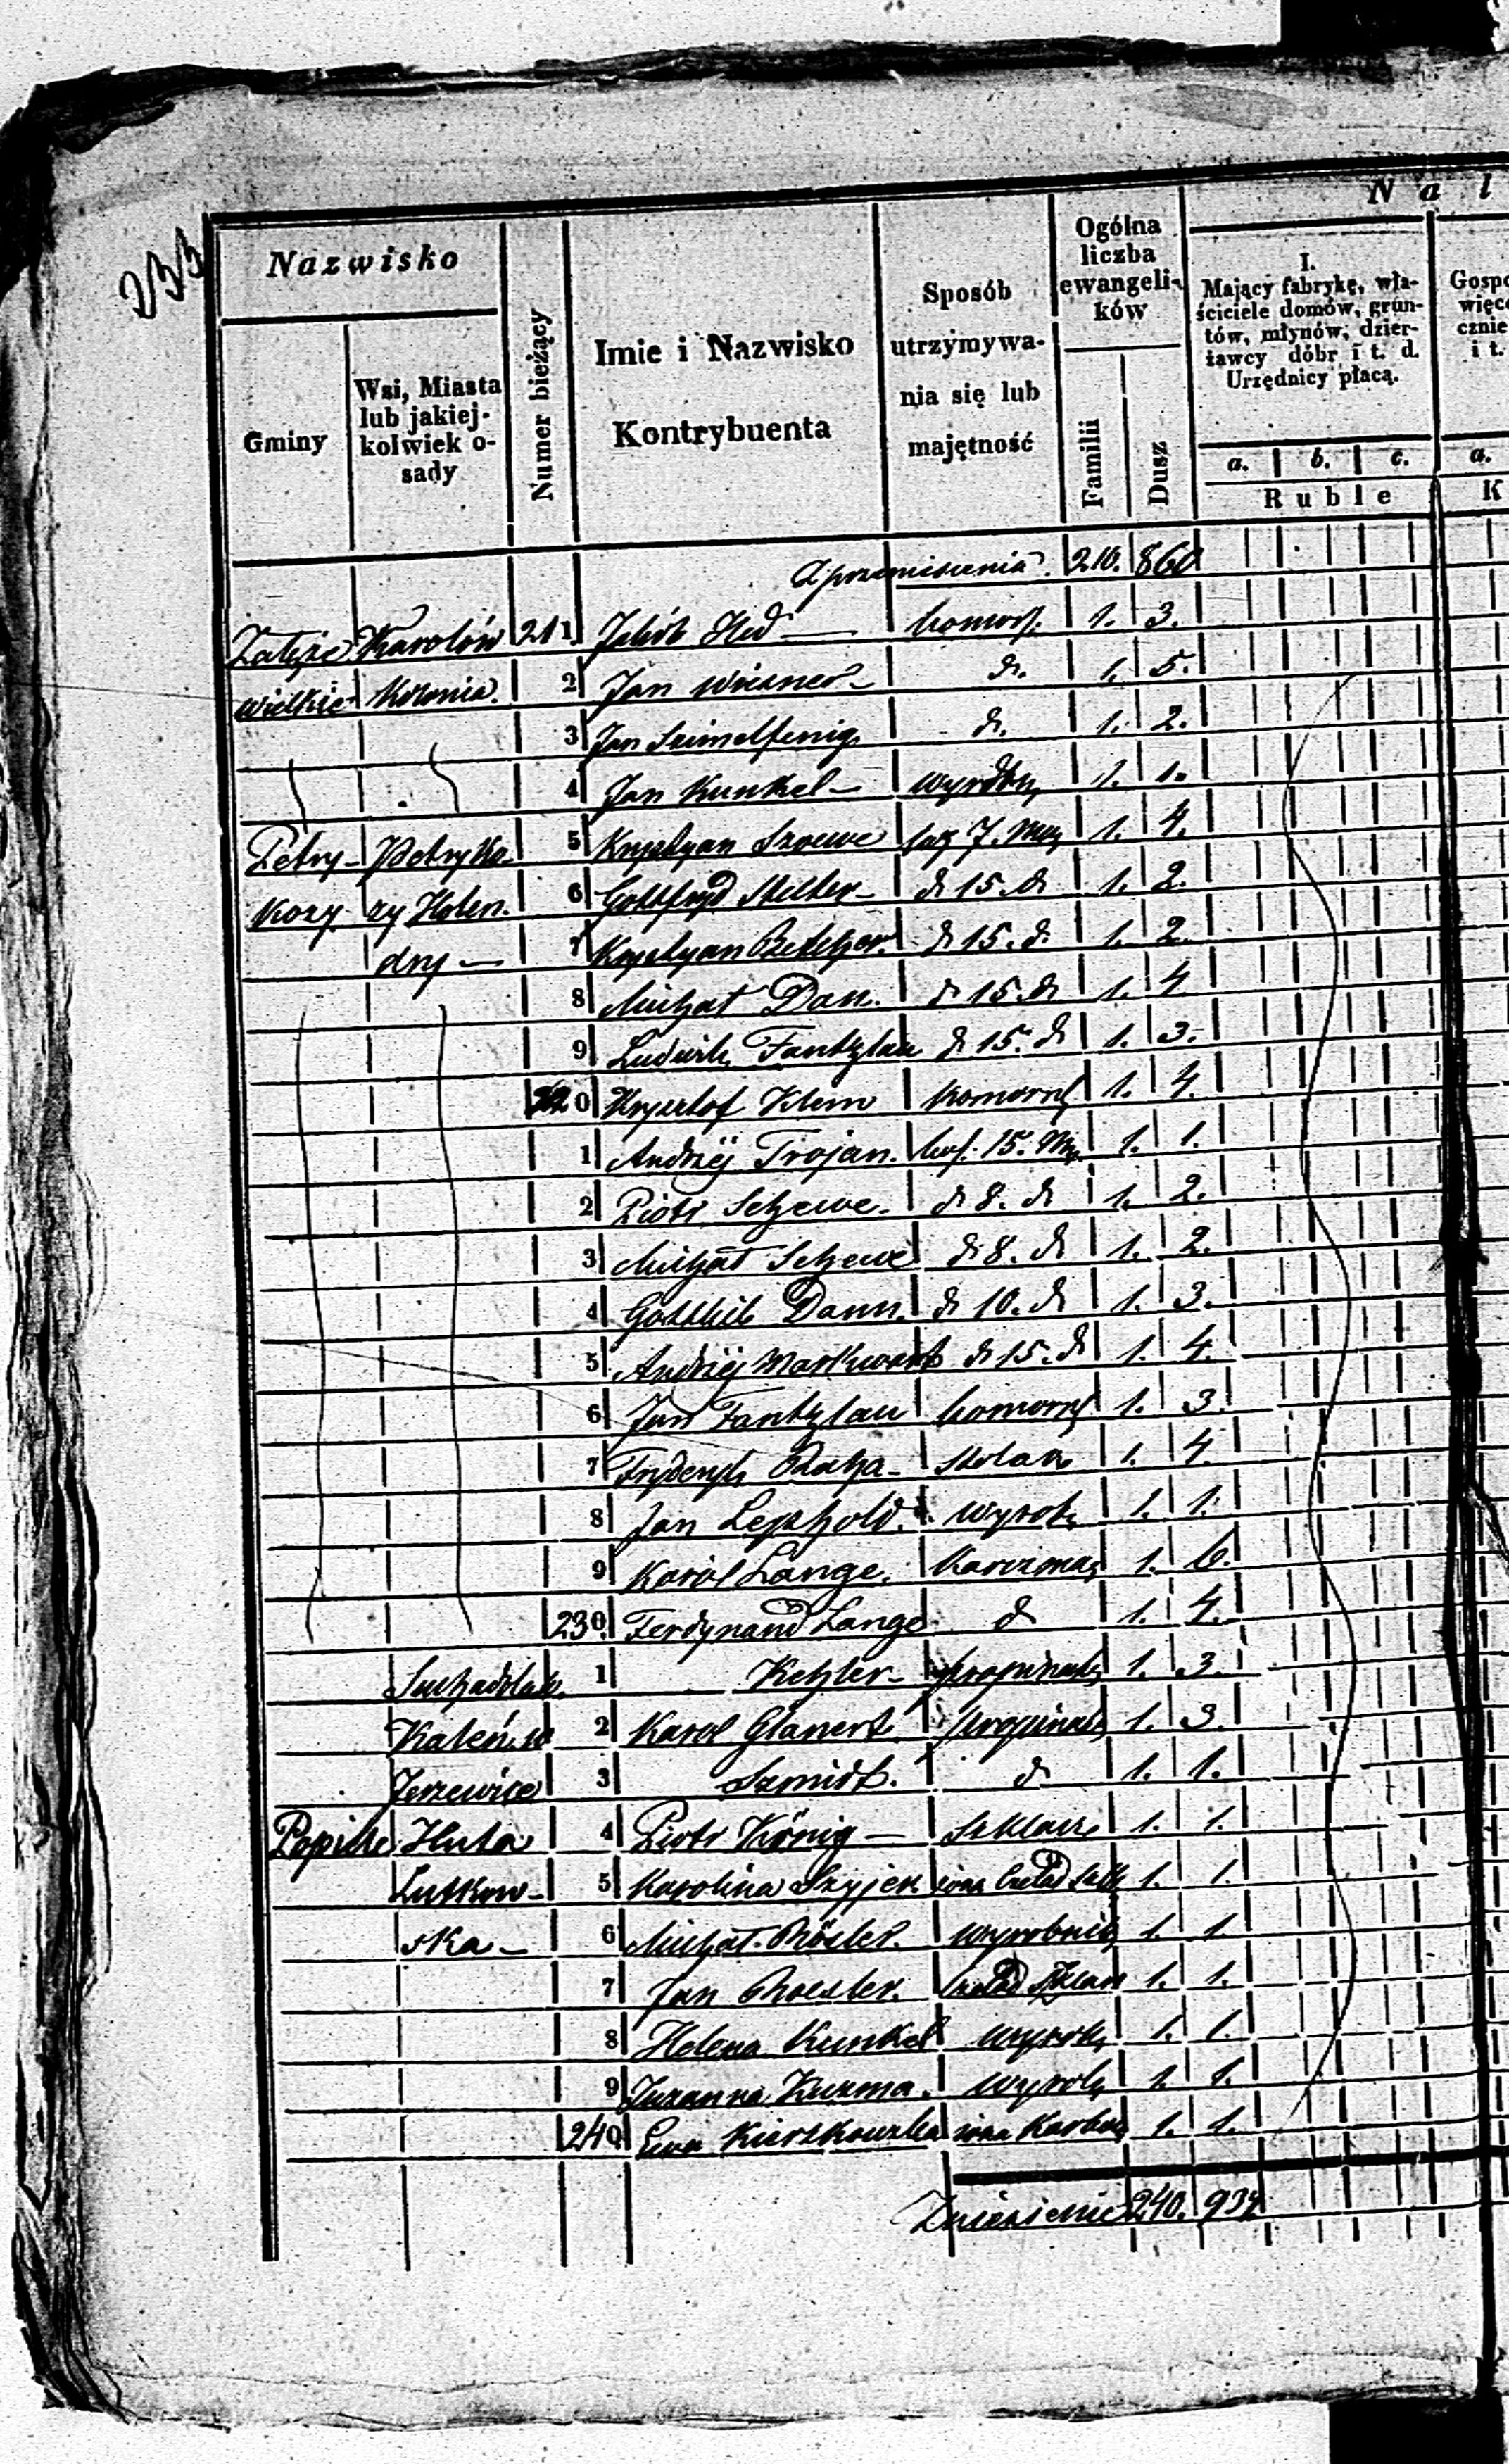 233
Nal
Nazwisko
Gminy
Wsi, Miasta lub jakiej-kolwiek o-sady
Numer bieżący
Imie i Nazwisko Kontrybuenta
Sposób utrzymywa-nia się lub majętność
Ogólna liczba ewangeli-ków
Familii
Dusz
I.
Mający fabrykę, wła-
ściciele domów, grun-
tów, młynów, dzier-
żawcy dóbr i t. d.
Urzędnicy płacą.
a. b. c.
Ruble
Gospo
więc
cznie
i t.
a.
K
Z przeniesienia 210. 860
Karolów 211 Jakób Hed komor. 1. 3.
wielkie Kolonia. 2 Jan Wiesner d. 1. 5.
3 Jan Szimelfenig d. 1. 2.
4 Jan Kunkel wyrobn 1. 1.
Petry- Petryko 5 Krystyan Szewe 7. Mrg 1. 4.
kozy zy Holen. 6 Gottfryd Milke d 15. d 1. 2.
dry 7 Krystyan d 15. d. 1. 2.
8 Michał Dan. d 15. d 1. 4.
9 Ludwik Fantzlau d 15. d 1. 3.
220 Krysztof Klem komorn 1. 4.
1 Andrzej Trojan. 15. Mrg 1. 1.
2 Piotr Schewe d 8. d 1. 2.
3 Michał Schewe d 8. d 1. 2.
4 Gottlieb Dann. d 10. d 1. 3.
5 Andrzej Markwart d 15. d 1. 4.
6 Jan Fantzlau komorn 1. 3.
7 Fryderyk 1. 4.
8 Jan wyrob 1. 1.
9 Karol Lange. Karczmarz 1. 6.
230. Ferdynand Lange d 1. 4.
1 Ketzler propinat 1. 3.
2 Karol Glanert propinat 1. 3.
Jerzewice 3 Szmidt. d 1. 1.
Huta 4 Piotr König Szklarz 1. 1.
Lutkow- 5 Karolina żona 1. 1.
ska 6 Michał Rösler. wyrobnik 1. 1.
7 Jan Roesler. 1. 1.
8 Helena Kunkel wyrob 1. 1.
9 Zuzanna Kuzma. wyrob 1. 1.
240 Ewa Kierszkowska żona 1. 1.
Zniesienie 240. 934